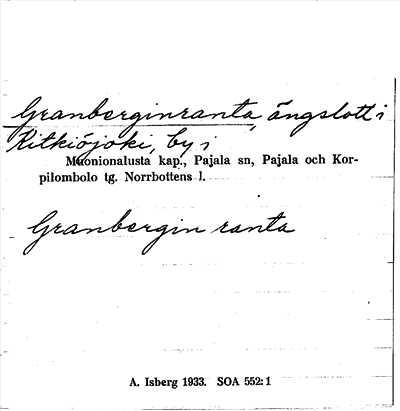 Granberginranta, ängslott i
Kitkiöjoki, by i
Muonionalusta kap., Pajala sn, Pajala och Kor-
pilombolo tg. Norrbottens l.
Granbergin ranta
A. Isberg 1933. SOA 552: 1